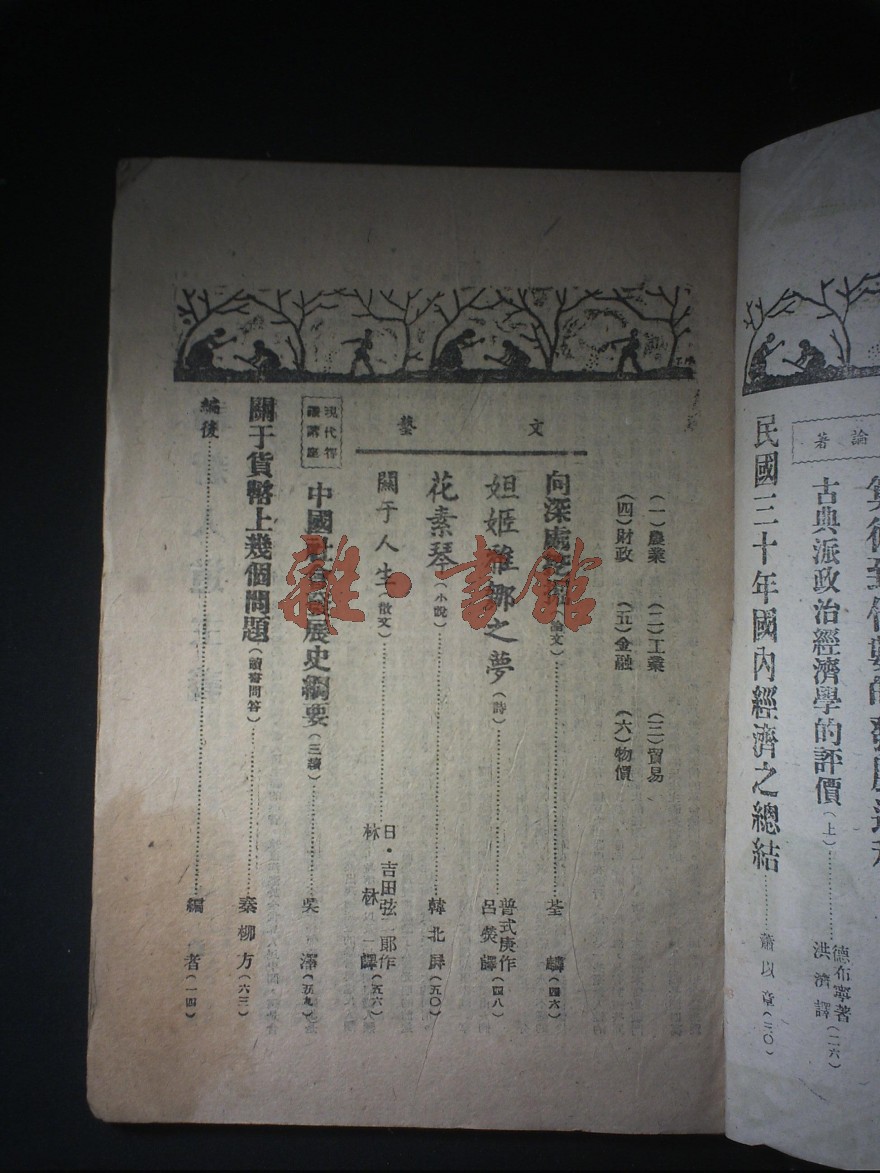 論著
古典派政治經濟學的評價(上)……德布寧著 洪濟譯(二六)
民國三十年國內經濟之總結……蕭以章(三〇)
(一)農業 (二)工業 (三)貿易
(四)財政 (五)金融 (六)物價
文藝
向深處(論文)……荃麟(四六)
妲姬雅娜之夢(詩)……普式庚作 呂熒譯(四八)
花素琴(小說)……韓北屏(五〇)
關于人生(散文)……日·吉田弦二郎作 林林譯(五六)
現代智識講座
中國社會發展史綱要(三續)……吳澤(五九)
關于貨幣上幾個問題(讀書問答)……秦柳方(六三)
編後……編者(一四)
雜·書館